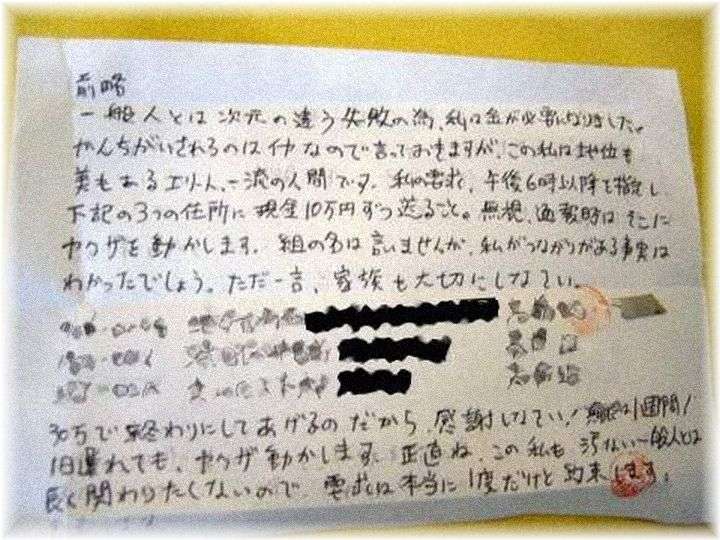 前略
一般人とは次元の違う失敗の為、私は金が必要になりました。
かんちがいされるのはイヤなので言っておきますが、この私は地位も
美もあるエリート、一流の人間です。私の要求、午後6時以降を指定し、
下記の3つの住所に現金10万円ずつ送ること。無視、通報時はそこに
ヤクザを動かします。組の名は言いませんが、私がつながりがある事実は
わかったでしょう。ただ一言、家族も大切にしなさい。
30万で終わりにしてあげるのだから、感謝しなさい!期限は1週間!
1日遅れても、ヤクザ動かします。正直ね、この私も汚ない一般人とは
長く関わりたくないので、要求は本当に1度だけと約束します。